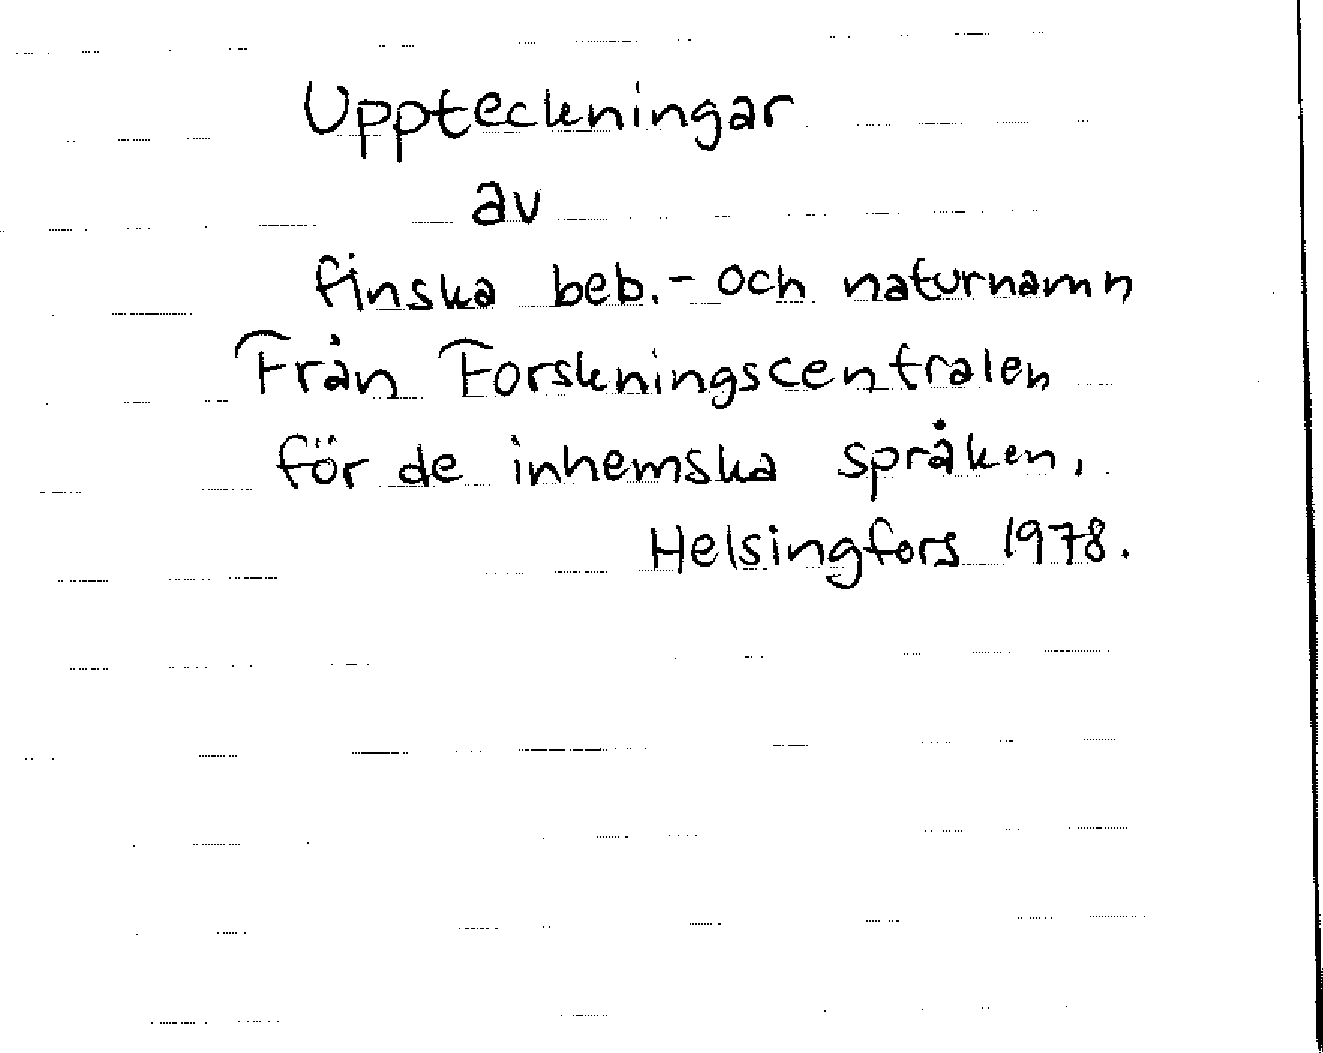 Uppteckningar
av
finska beb.- och naturnamn
Från Forskningscentralen
för de inhemska språken,
Helsingfors 1978.